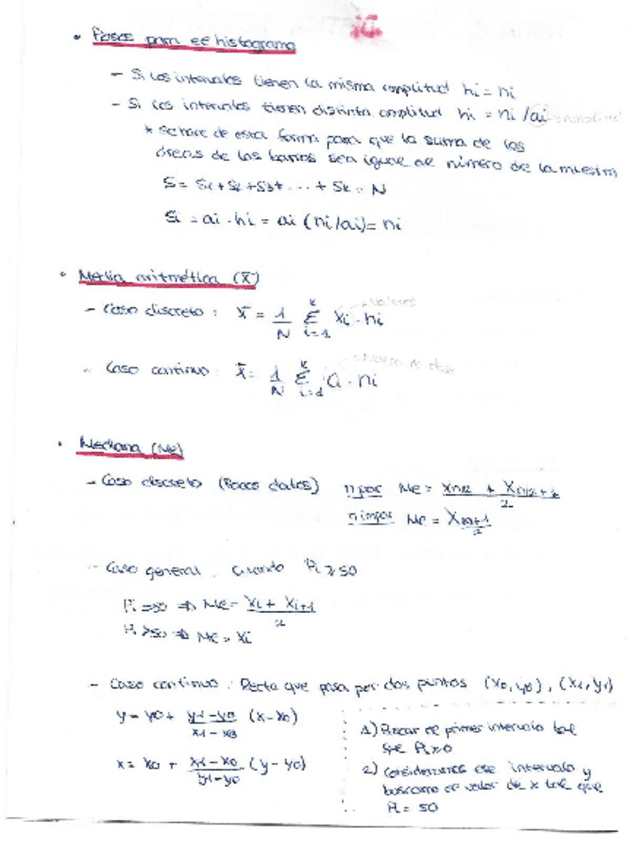 • Pasos para el histograma
- Si los intervalos tienen la misma amplitud hi = ni
- Si los intervalos tienen distinta amplitud hi = ni/ai
* Se hace de esta forma para que la suma de las
áreas de las barras sea igual al número de la muestra
S = S1 + S2 + S3 + ... + Sk = N
Si = ai · hi = ai (ni/ai) = ni
• Media aritmética (x̄)
- Caso discreto : x̄ = 1/N Σ i=1 k xi · ni
valores
- Caso continuo : x̄ = 1/N Σ i=1 k ci · ni
Marca de clase
• Mediana (Me)
- Caso discreto (Pocos datos) n par Me = (Xn/2 + Xn/2+1)/2
n impar Me = X(n+1)/2
- Caso general. Cuando Pi ≥ 50
Pi = 50 ⇒ Me = (Xi + Xi+1)/2
Pi > 50 ⇒ Me = Xi
- Caso continuo : Recta que pasa por dos puntos (x0, y0), (x1, y1)
y = y0 + (y1 - y0)/(x1 - x0) (x - x0)
x = x0 + (x1 - x0)/(y1 - y0) (y - y0)
1) Buscar el primer intervalo tal
que
2) Consideramos ese intervalo y
buscamos el valor de x tal que
Pi = 50